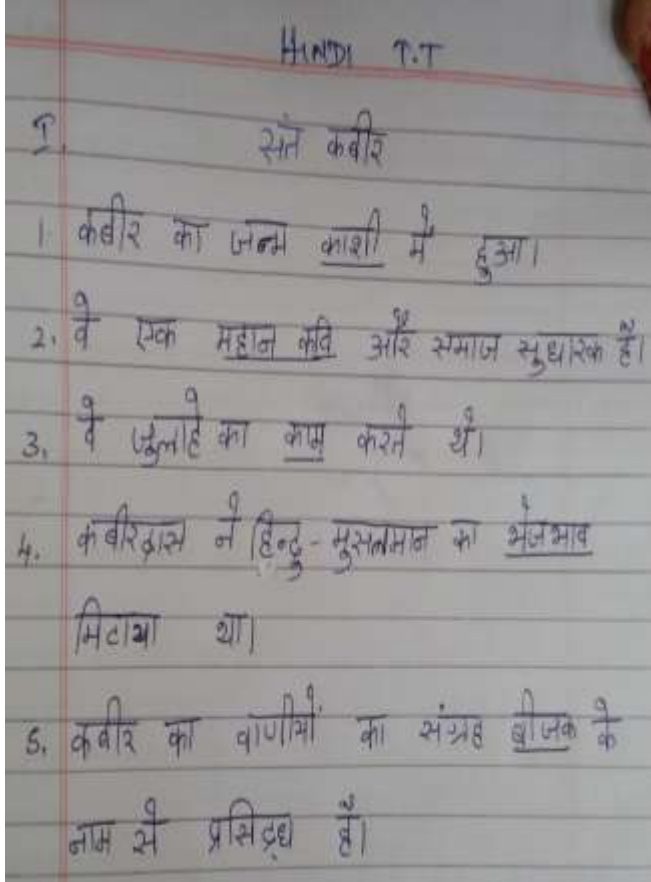 HINDI T.T
I. संत कबीर
1. कबीर का जन्म काशी में हुआ।
2. वे एक महान कवि और समाज सुधारक हैं।
3. वे जुलाहे का काम करते थे।
4. कबीरदास ने हिन्दु-मुसलमान का भेजभाव
मिटाया था।
5. कबीर का वाणीयों का संग्रह बीजक के
नाम से प्रसिद्ध है।